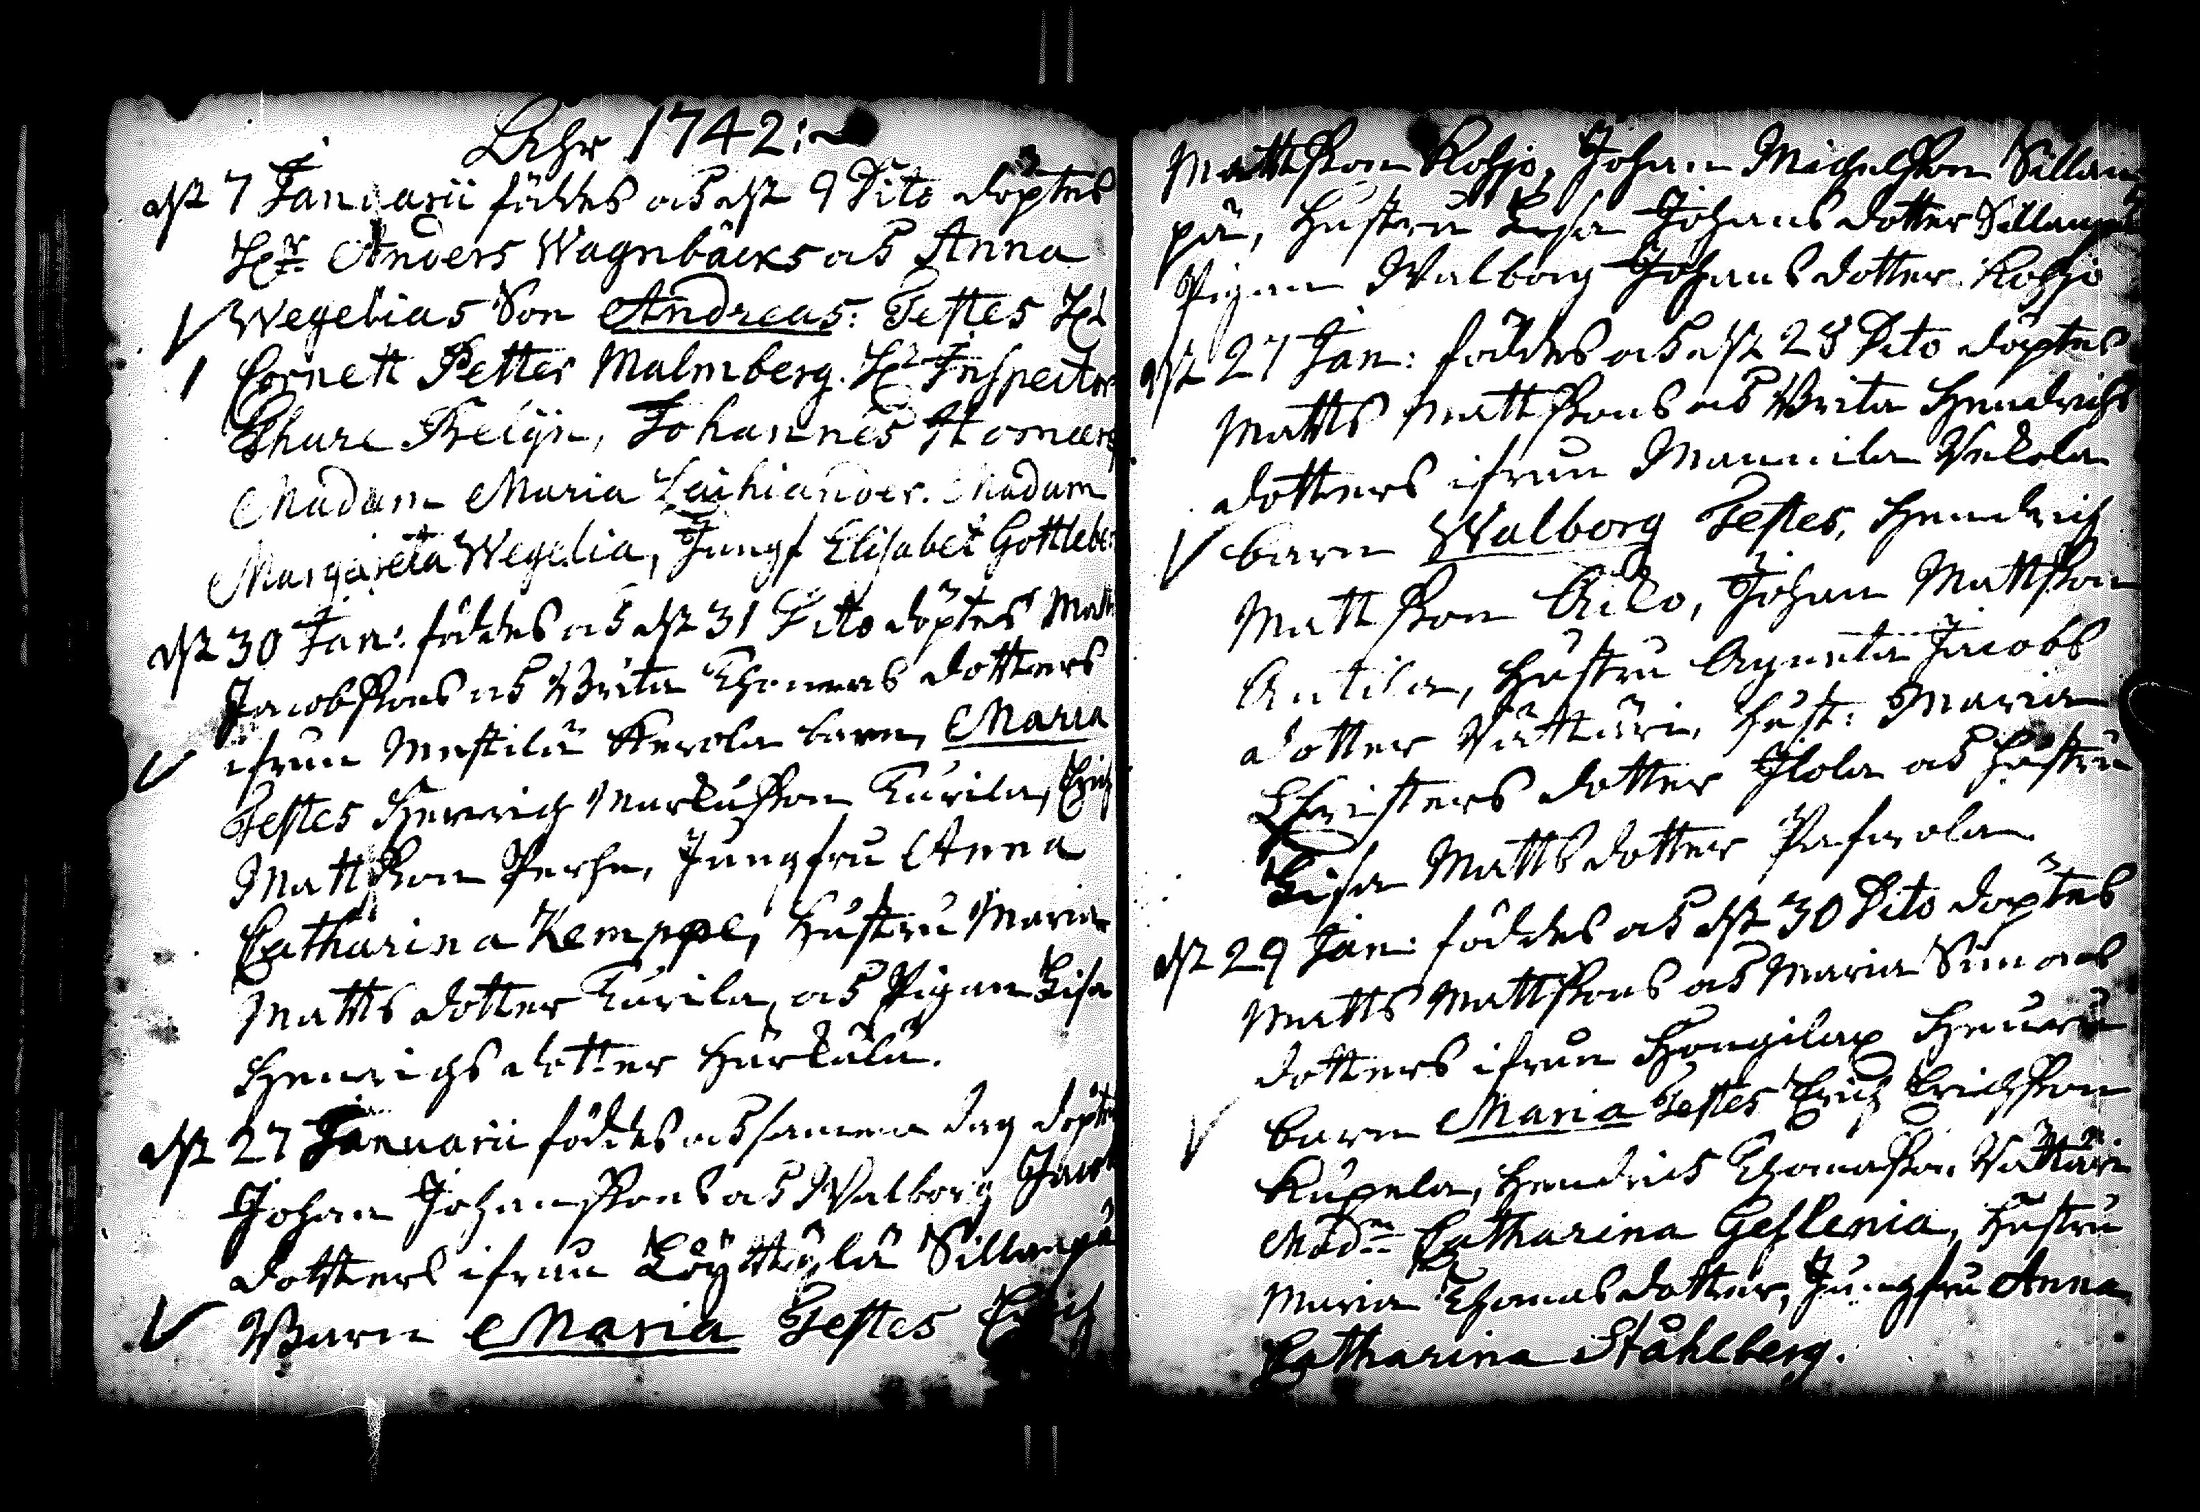 Åhr 1742:
dn 7 Januarii föddes och dn 9 Dito döptes
Hr Anders Wagnbäcks och Anna
Wegelias Son Andreas: Testes Hr
1 Cornett Petter Malmberg. Hr Inspector
Thure Prelijn, Johannes
Madam Maria Madam
Margareta Wegelia, Jungf Elisabet Gottleben
dn 30 Jan: föddes och dn 31 Dito döptes Matts
Jacobssons och Brita Thomas dotters
ifrån Mustilä Kerola barn, Maria
Testes Henrich Markusson Kurila, Erich
Mattsson Perhe, Jungfru Anna
Catharina Kemppe, Hustru Maria
Matts dotter Kurila, och Pigan Lisa
Henrichs dotter Härkälä.
dn 27 Januarii föddes och samma dag döptes
Johan Johanssons och Walborg Jacobs
dotters ifrån Löyttylä Sillanpä
Barn Maria Testes Erich
Mattsson Kohjo, Johan Michelsson Sillan
pä, Hustru Lisa Johans dotter Sillanpä
Pigan Walborg Johans dotter Kohjo
dn 27 Jan: föddes och dn 28 Dito döptes
Matts Mattssons och Brita Hendrichs
dotters ifrån Mannila Ukkola
barn Walborg Testes, Hendrich
Mattsson Äilo, Johan Mattsson
Antila, Hustru Agneta Jacobs
dotter Vättäri, Hust: Maria
Christers dotter Ilola och Hustru
Lisa Matts dotter Pafwola
dn 29 Jan: föddes och dn 30 Dito döptes
Matts Mattssons och Maria Simons
dotters ifrån Hongilax
barn Maria Testes Erich Erichsson
Kupela, Hendrich Thomasson Vättäri
Madm Catharina Geslenia, Hustru
Maria Thomas dotter, Jungfru Anna
Catharina Ståhlberg.